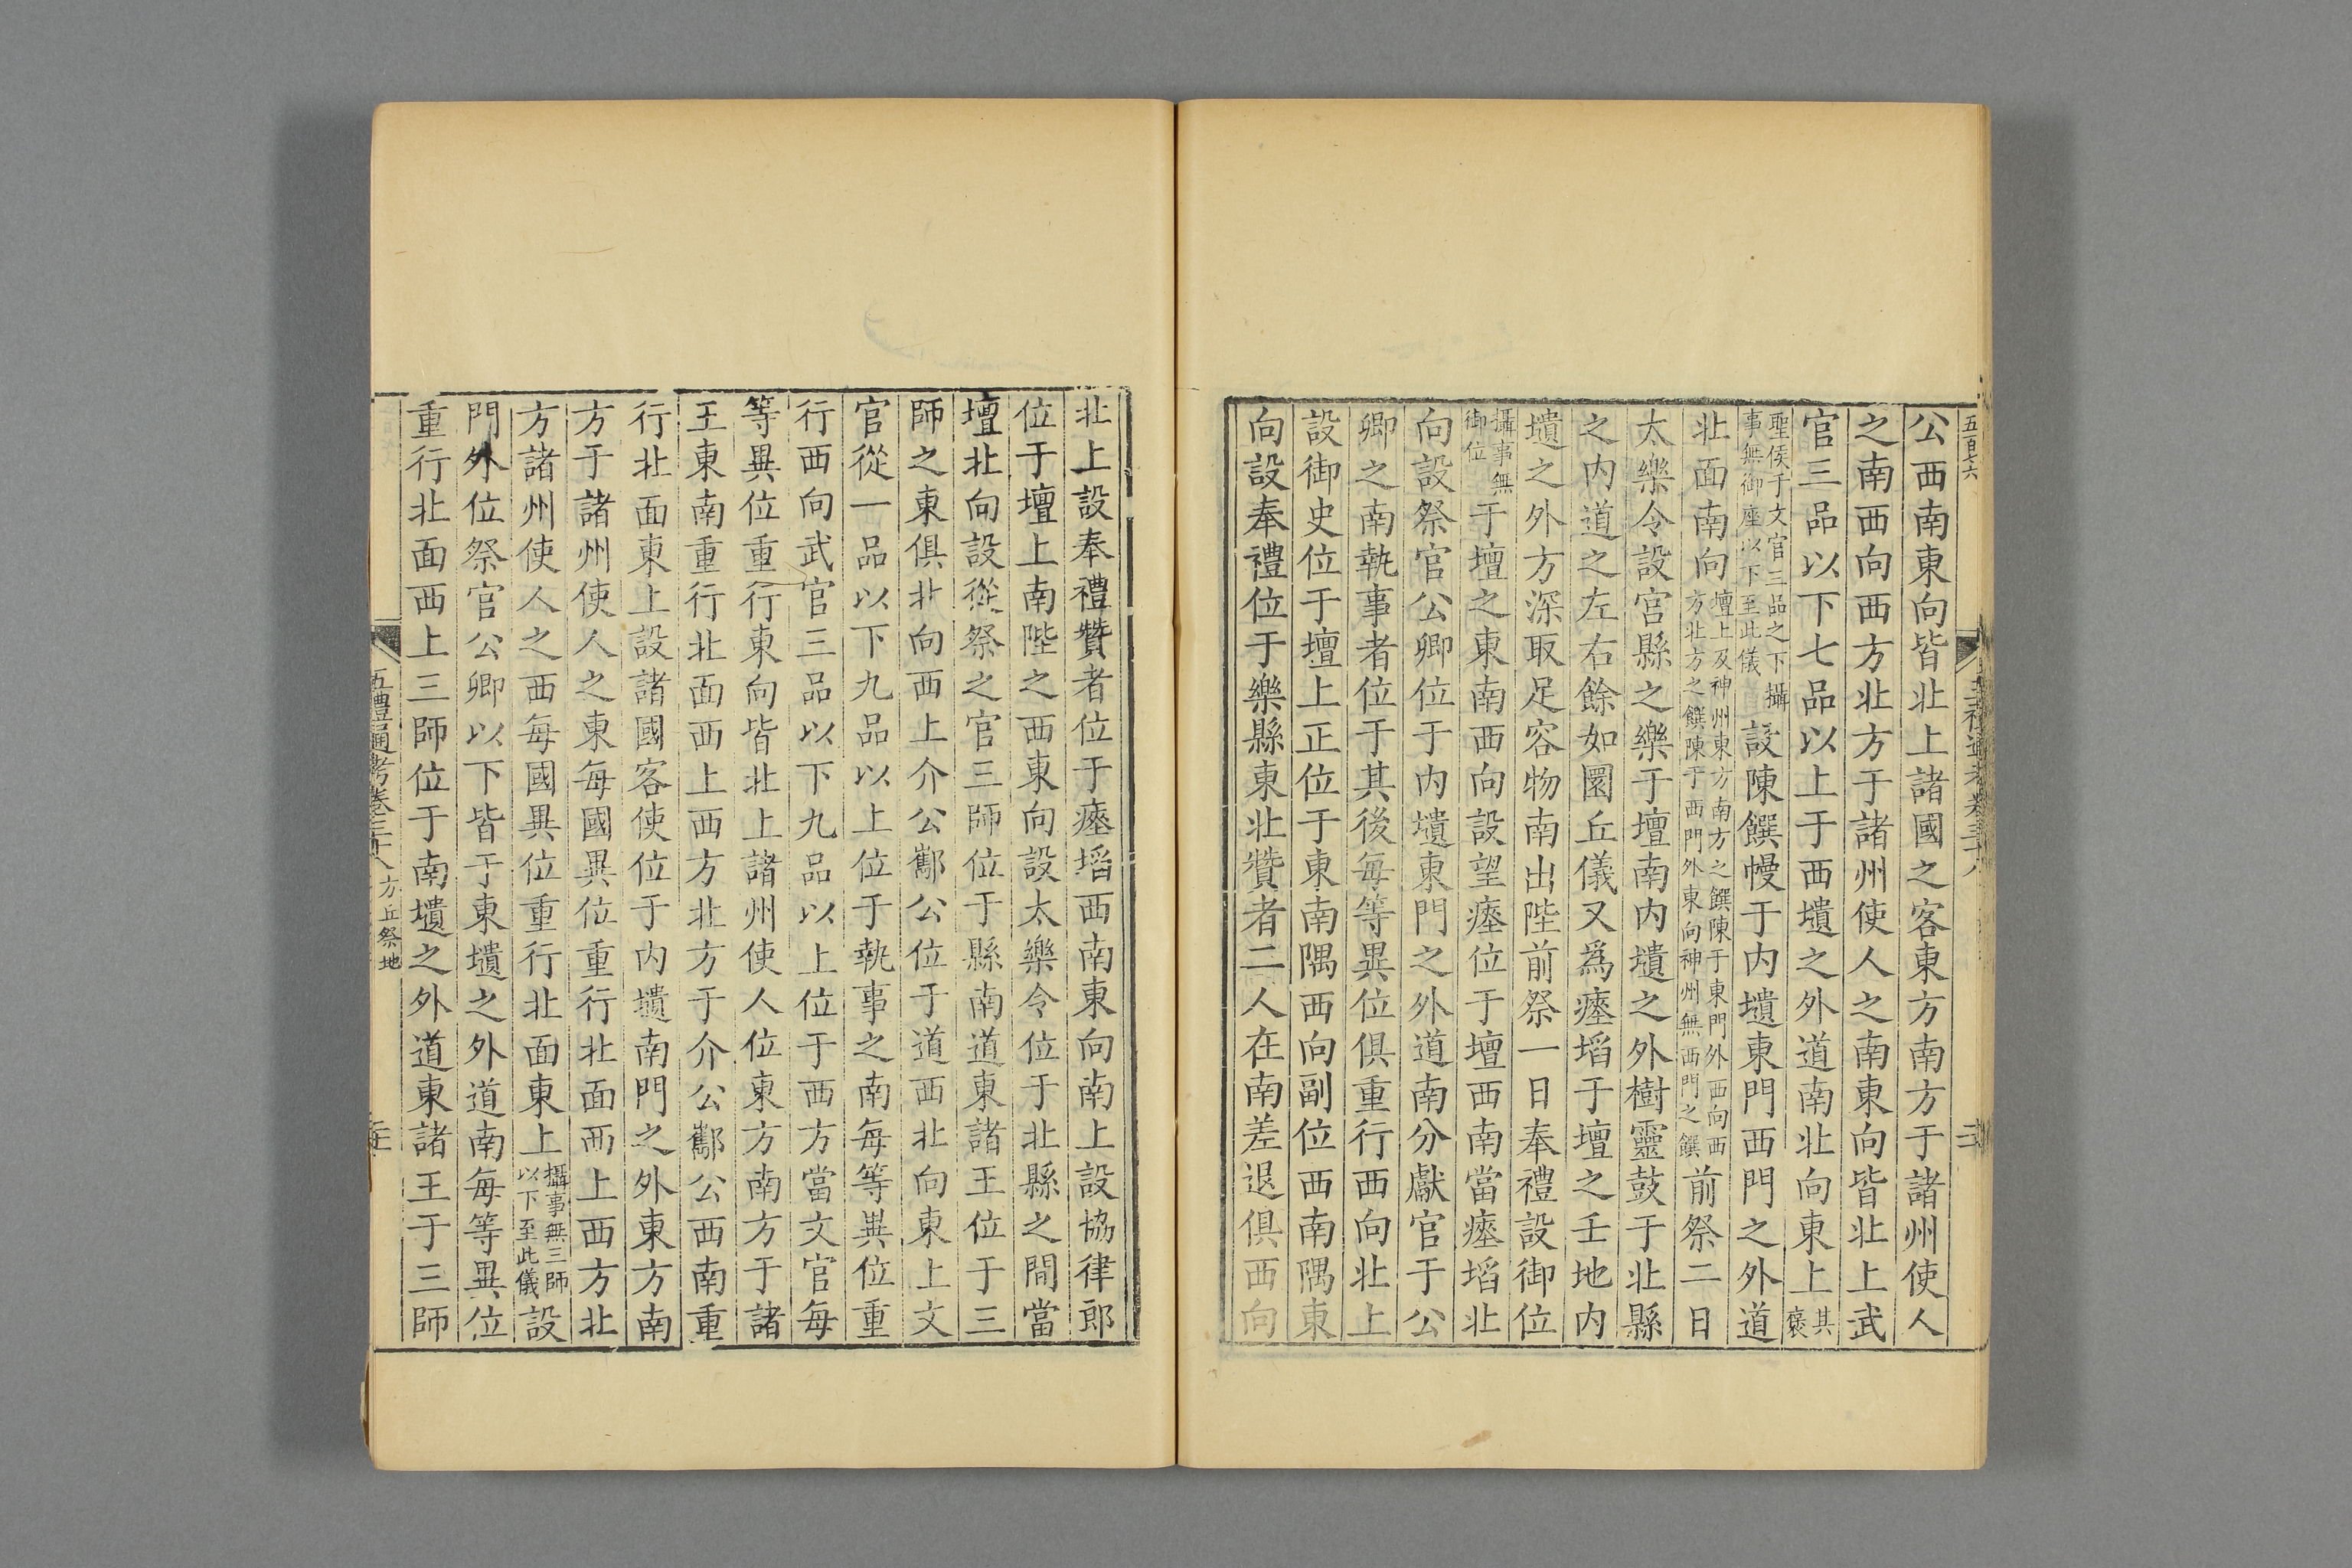 五百七六
公西南東向皆北上諸國之客東方南方于諸州使人
之南西向西方北方于諸州使人之南東向皆北上武
官三品以下七品以上于西壝之外道南北向東上其
褒
聖侯于文官三品之下攝
事無御座以下至此儀
設陳饌幔于内壝東門西門之外道
北面南向
壇上及神州東方南方之饌陳于東門外西向西
方北方之饌陳于西門外東向神州無西門之饌
前祭二日
太樂令設宮縣之樂于壇南内壝之外樹靈鼓于北縣
之内道之左右餘如圜丘儀又爲瘞埳于壇之壬地内
壝之外方深取足容物南出陛前祭一日奉禮設御位
攝事無
御位
于壇之東南西向設望瘞位于壇西南當瘞埳北
向設祭官公卿位于内壝東門之外道南分獻官于公
卿之南執事者位于其後每等異位俱重行西向北上
設御史位于壇上正位于東南隅西向副位西南隅東
向設奉禮位于樂縣東北贊者二人在南差退俱西向
北上設奉禮贊者位于瘞埳西南東向南上設協律郎
位于壇上南陛之西東向設太樂令位于北縣之間當
壇北向設從祭之官三師位于縣南道東諸王位于三
師之東俱北向西上介公酅公位于道西北向東上文
官從一品以下九品以上位于執事之南每等異位重
行西向武官三品以下九品以上位于西方當文官每
等異位重行東向皆北上諸州使人位東方南方于諸
王東南重行北面西上西方北方于介公酅公西南重
行北面東上設諸國客使位于内壝南門之外東方南
方于諸州使人之東每國異位重行北面西上西方北
方諸州使人之西每國異位重行北面東上
攝事無三師
以下至此儀
設
門外位祭官公卿以下皆于東壝之外道南每等異位
重行北面西上三師位于南壝之外道東諸王于三師
五禮通考卷三十八
方丘祭地